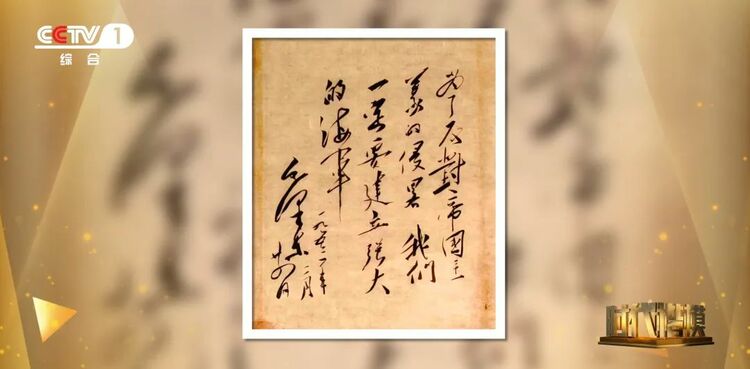 CCTV 1
综合
为了反對帝國主
義的侵畧 我們
一定要建立强大
的海军
毛泽东
一九五三年
二月
廿四日
时代楷模